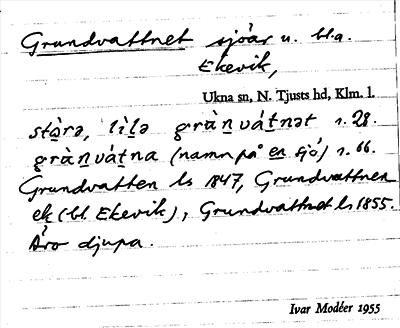 Grundvattnet sjöar u. bl.a.
Ekevik,
Ukna sn, N. Tjusts hd, Klm. l.
stò̱rə, lìḻə gràṉvát̠nət r. 28.
gràṉvát̠na (namn på en sjö) r. 66.
Grundvatten ls 1847, Grundvattnen
ek (bl. Ekevik), Grundvattnet ls 1855.
Äro djupa.
Ivar Modéer 1955